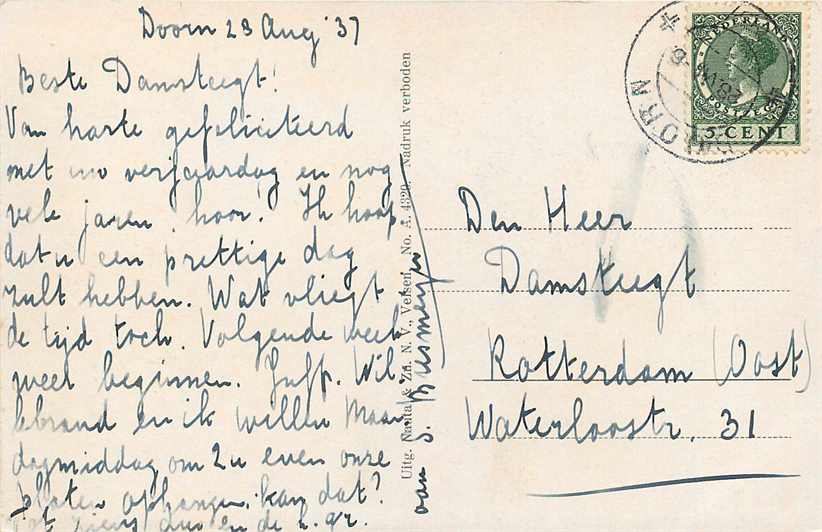 Doorn 23 Aug '37
Beste Damsteegt!
Van harte gefeliciteerd
met uw verjaardag en nog
vele jaren, hoor! Ik hoop
dat u een prettige dag
zult hebben. Wat vliegt
de tijd toch. Volgende week
weer beginnen. Juff. Wil
lebrand en ik willen Maan
dagmiddag om 2 u even onze
platen ophangen, kan dat?
Tot ziens en de h. gr.
aan S. Buismeyer
Uitg. Nauta & Zn. N. V., Velsen, No. A. 4320, Nadruk verboden
NEDERLAND
POSTZEGEL
5 CENT
DOORN
Den Heer
Damsteegt
Rotterdam (Oost)
Waterloostr. 31